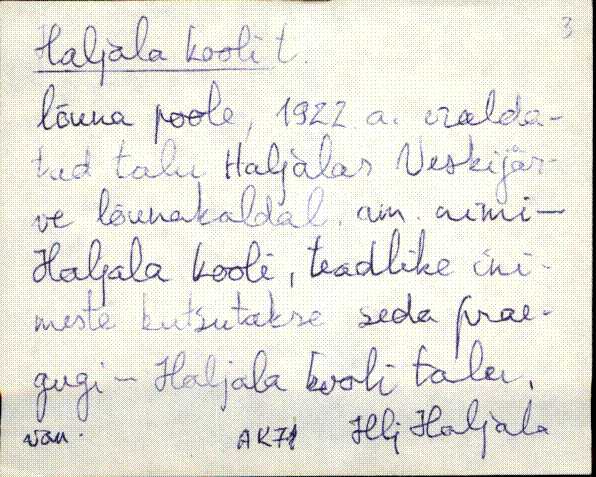 3
Haljala kooli t.
lõuna poole, 1922 a. eralda-
tud talu Haljalas Veskijär-
ve lõunakaldal. am. nimi-
Haljala kooli, teadlike ini-
meste kutsutakse seda prae-
gugi - Haljala kooli talu.
van. AK71 Hlj Haljala